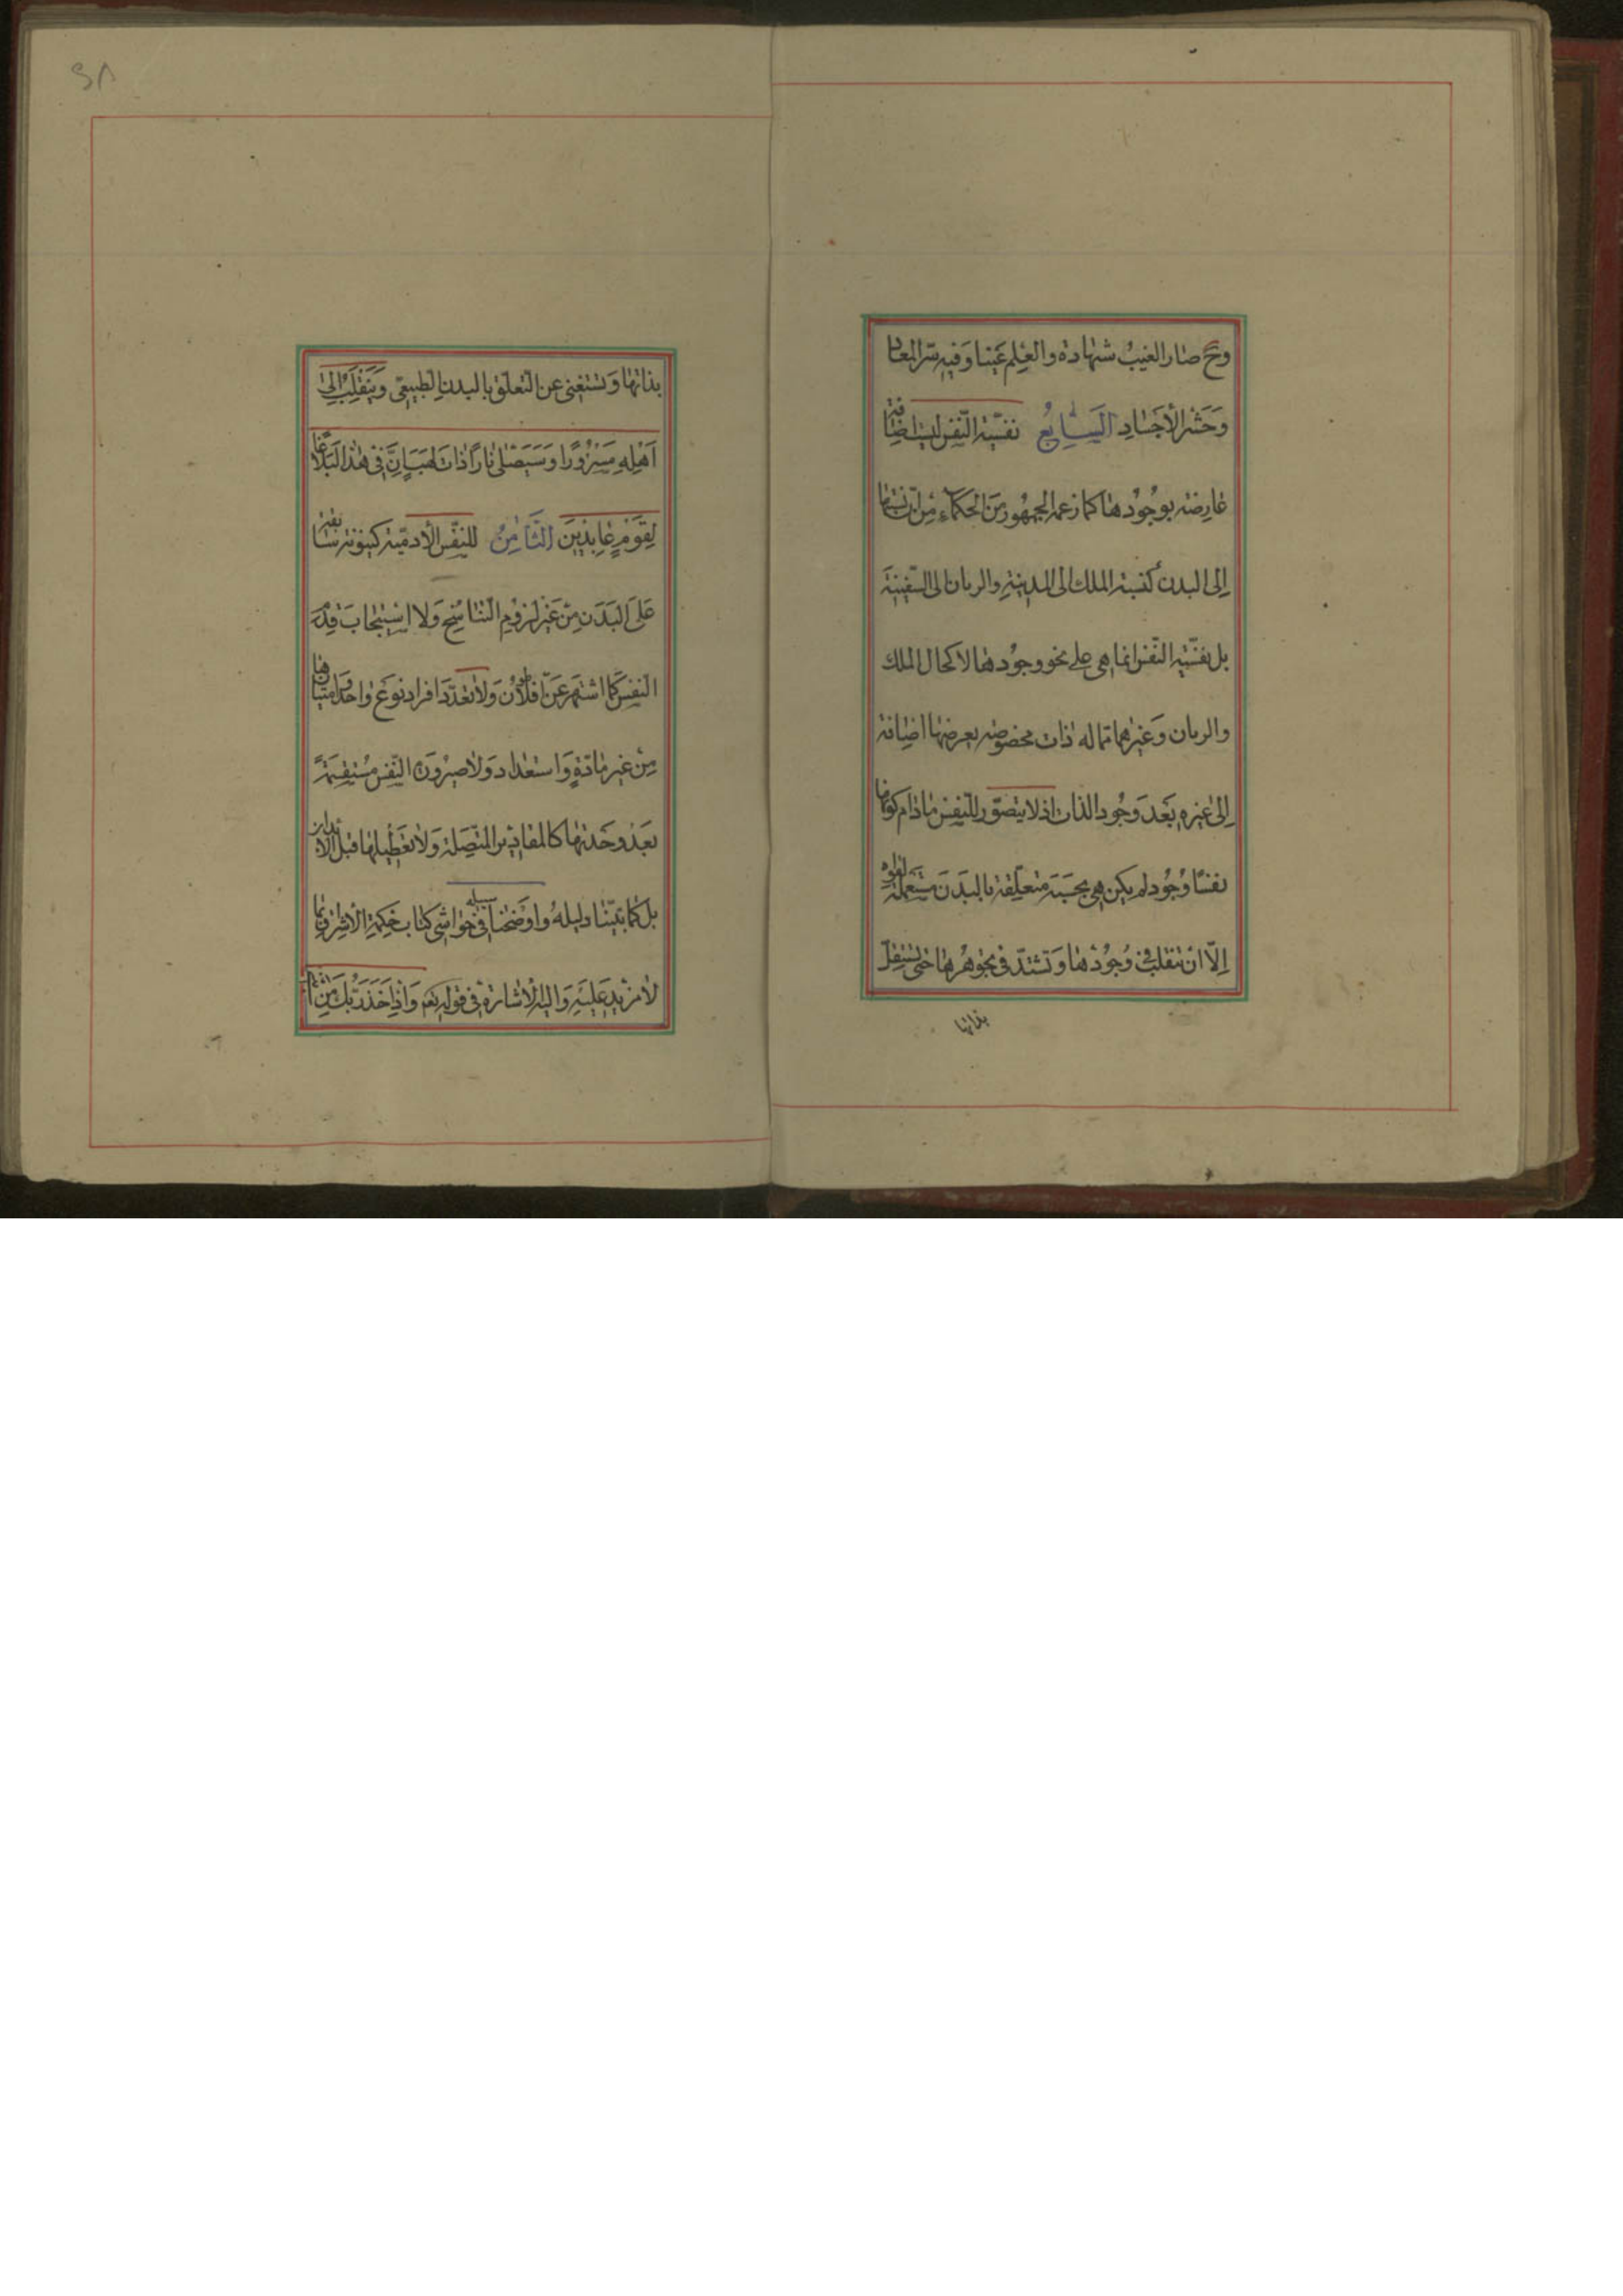 وح صار الغيب شهادة والعلم عينا وفيه سر المعاد
وَحَشر الأجَساد السَّابعُ نفسّية النّفس ليست اضافة
عارضة بوجُودها كما زعمه الجمهُور مِنَ الحكماء مِن انّ نسبتها
إلى البدن كنسبة الملك الى المدينة والربان الى السّفينة
بل نفسّية النّفس انما هي على نحو وجوُدها لا كحال الملك
والربان وَغيرهما مما له ذات مخصوصة يعرضها اضافة
إلى غيره بَعدَ وجُود الذات اذ لا يتصوّر للنّفس مادام كونها
نفسًا وجُود لم يكن هي بحسَبَه متعلّقة بالبَدَن مستَعملة لقواه
إلّا ان تنقلب في وُجُودها وَتشتدّ في تجوهُرها حتى تستقلّ
بذاتها
بذاتها وَتستغني عن التّعلّق بالبدن الطبيعّي وَيَنقَلِبُ اِلىٰ
اَهلِهِ مَسرُورًا وَسَيَصلىٰ نارًا ذاتَ لهَبَ اِنَّ في هٰذا لَبَلاغًا
لِقَومٍ عٰابِدينَ الثّامِنُ للنفّس الأدميّة كينونة سٰابقة
عَلى البَدَن مِن غَير لزوُم التّناسُخ وَلا استيجابَ قِدَم
النفسَ كما اشتهر عَن افلاطُن وَلا تعدّد افراد نوع واحد وامتيازها
مِن غير مادّةٍ وَاستعداد وَلا صيرُورَة النّفس مُنقسِمَةً
بعَد وحدتها كالمقادير المتّصِلة وَلا تَعطيلها قبل الأبدان
بل كما بيّنا دليلهُ واوَضحنا سبيله في حَواشي كتاب حِكمَة الأشراق بما
لا مزيد عَليَهِ وَاليه الأشارة في قوله تعـ وَاِذ اَخَذَ رَبُّكَ مِن